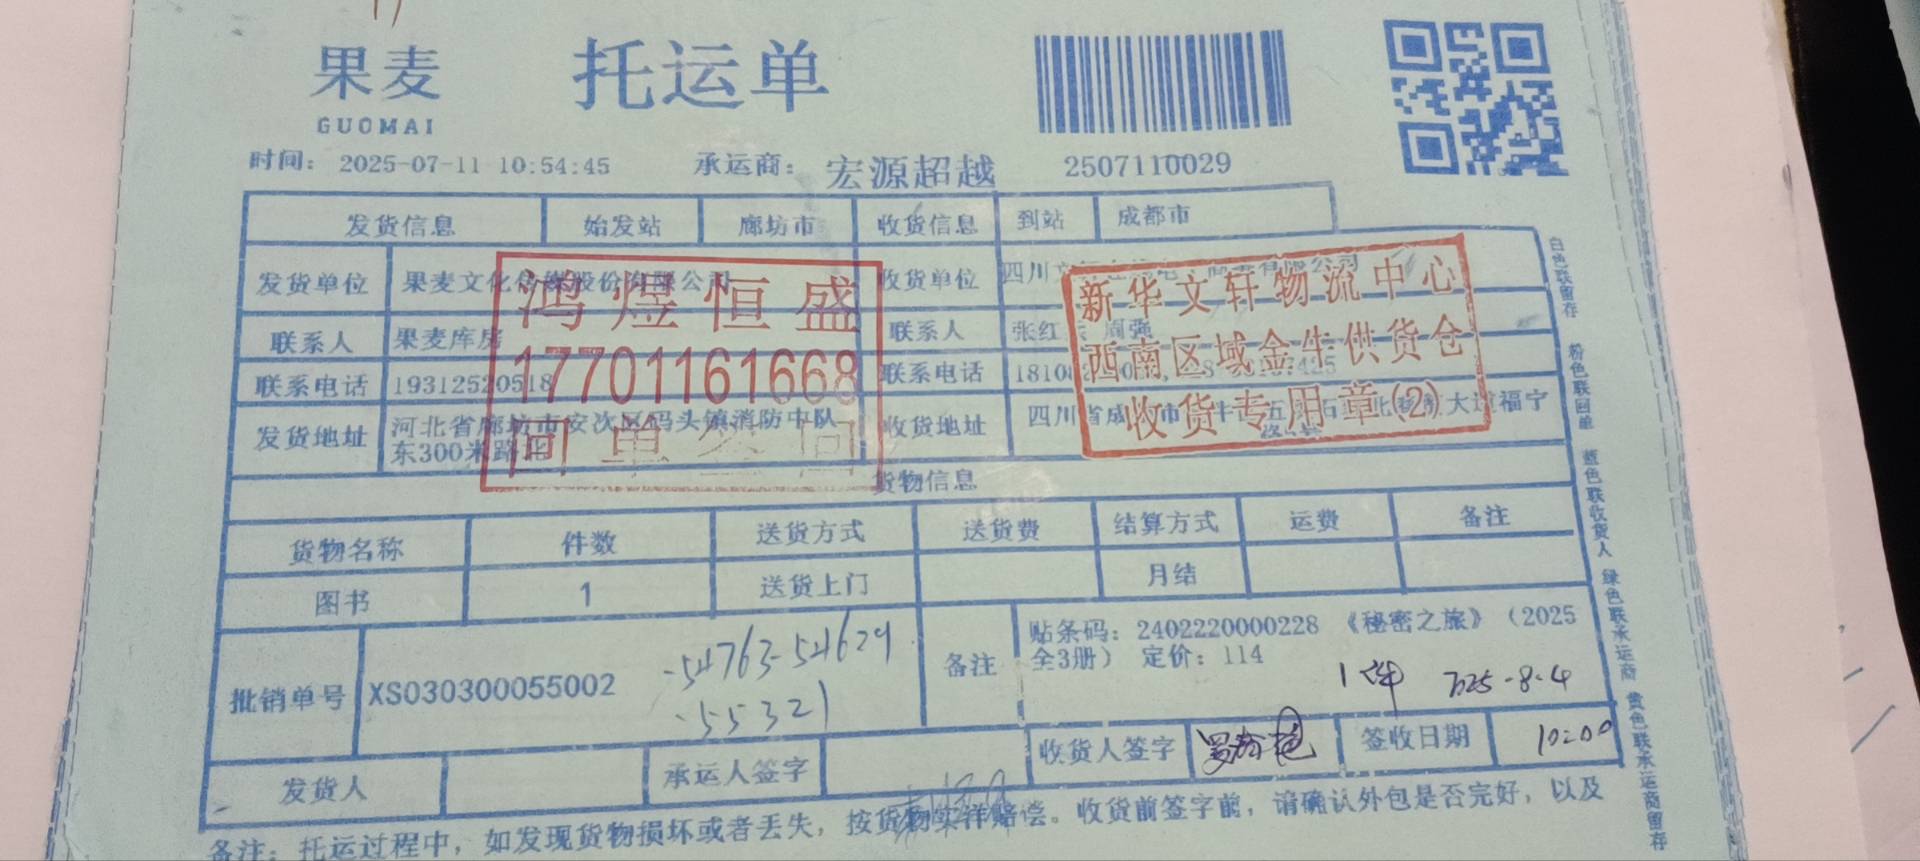 果麦
GUOMAI
托运单
时间： 2025-07-11 10:54:45 承运商： 宏源超越 2507110029
发货信息 始发站 廊坊市 收货信息 到站 成都市
发货单位 果麦文化传媒股份有限公司 收货单位 四川
联系人 果麦库房 联系人 张红 周强
联系电话 19312520518 联系电话 18108
发货地址 河北省廊坊市安次区码头镇消防中队
东300米路北
收货地址 四川省成 市 牛 五 石 北 大道福宁
鸿煜恒盛
17701161668
回单签回
新华文轩物流中心
西南区域金牛供货仓
收货专用章(2)
货物信息
货物名称 件数 送货方式 送货费 结算方式 运费 备注
图书 1 送货上门 月结
批销单号 XS030300055002
-54763-54629
-55321
备注 贴条码：2402220000228 《秘密之旅》（2025
全3册） 定价：114
1件 2025-8-4
发货人 承运人签字 收货人签字 签收日期 10:00
备注：托运过程中，如发现货物损坏或者丢失，按货物实洋赔偿。收货前签字前，请确认外包是否完好，以及
白色联留存 粉色联回单 蓝色联收货人 绿色联承运商 黄色联承运商留存